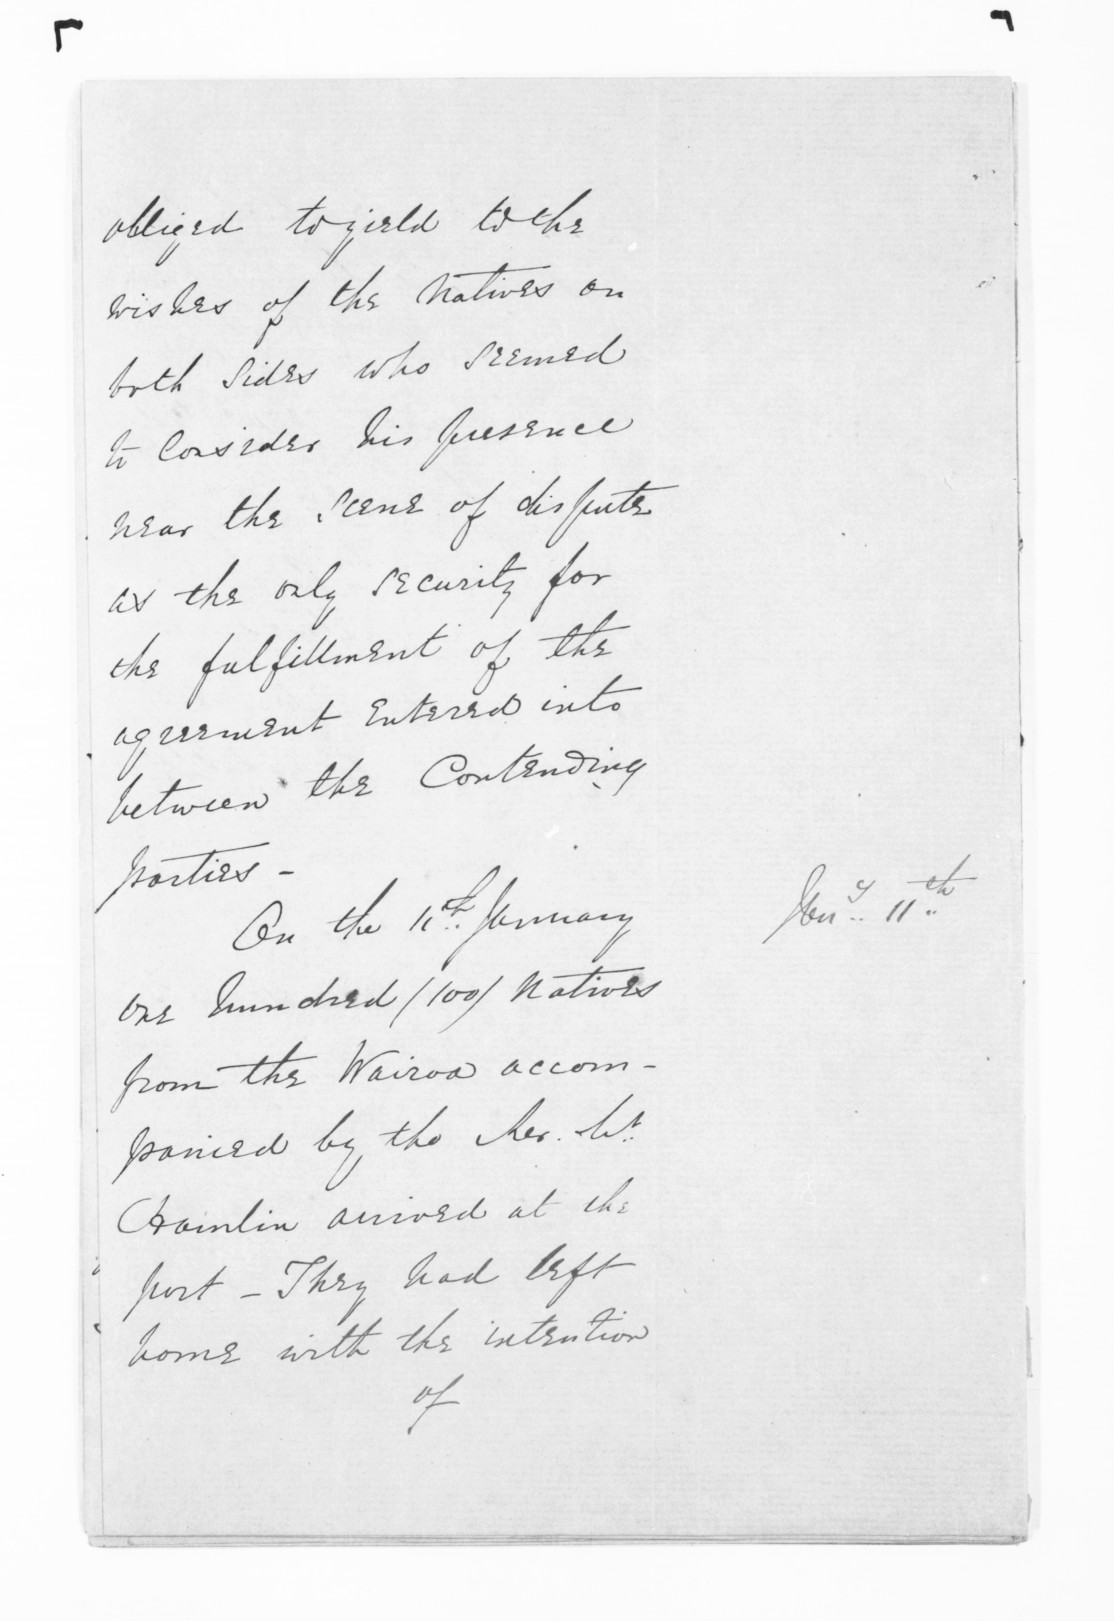 obliged to yield to the
wishes of the Natives on
both sides who seemed
to Consider his presence
near the scene of dispute
as the only security for
the fulfillment of the
agreement Entered into
between the Contending
parties -
On the 11th. January
Jany. 11th.
one hundred (100) Natives
from the Wairoa accom-
panied by the Rev. Mr.
Hamlin arrived at the
port - They had left
home with the intention
of